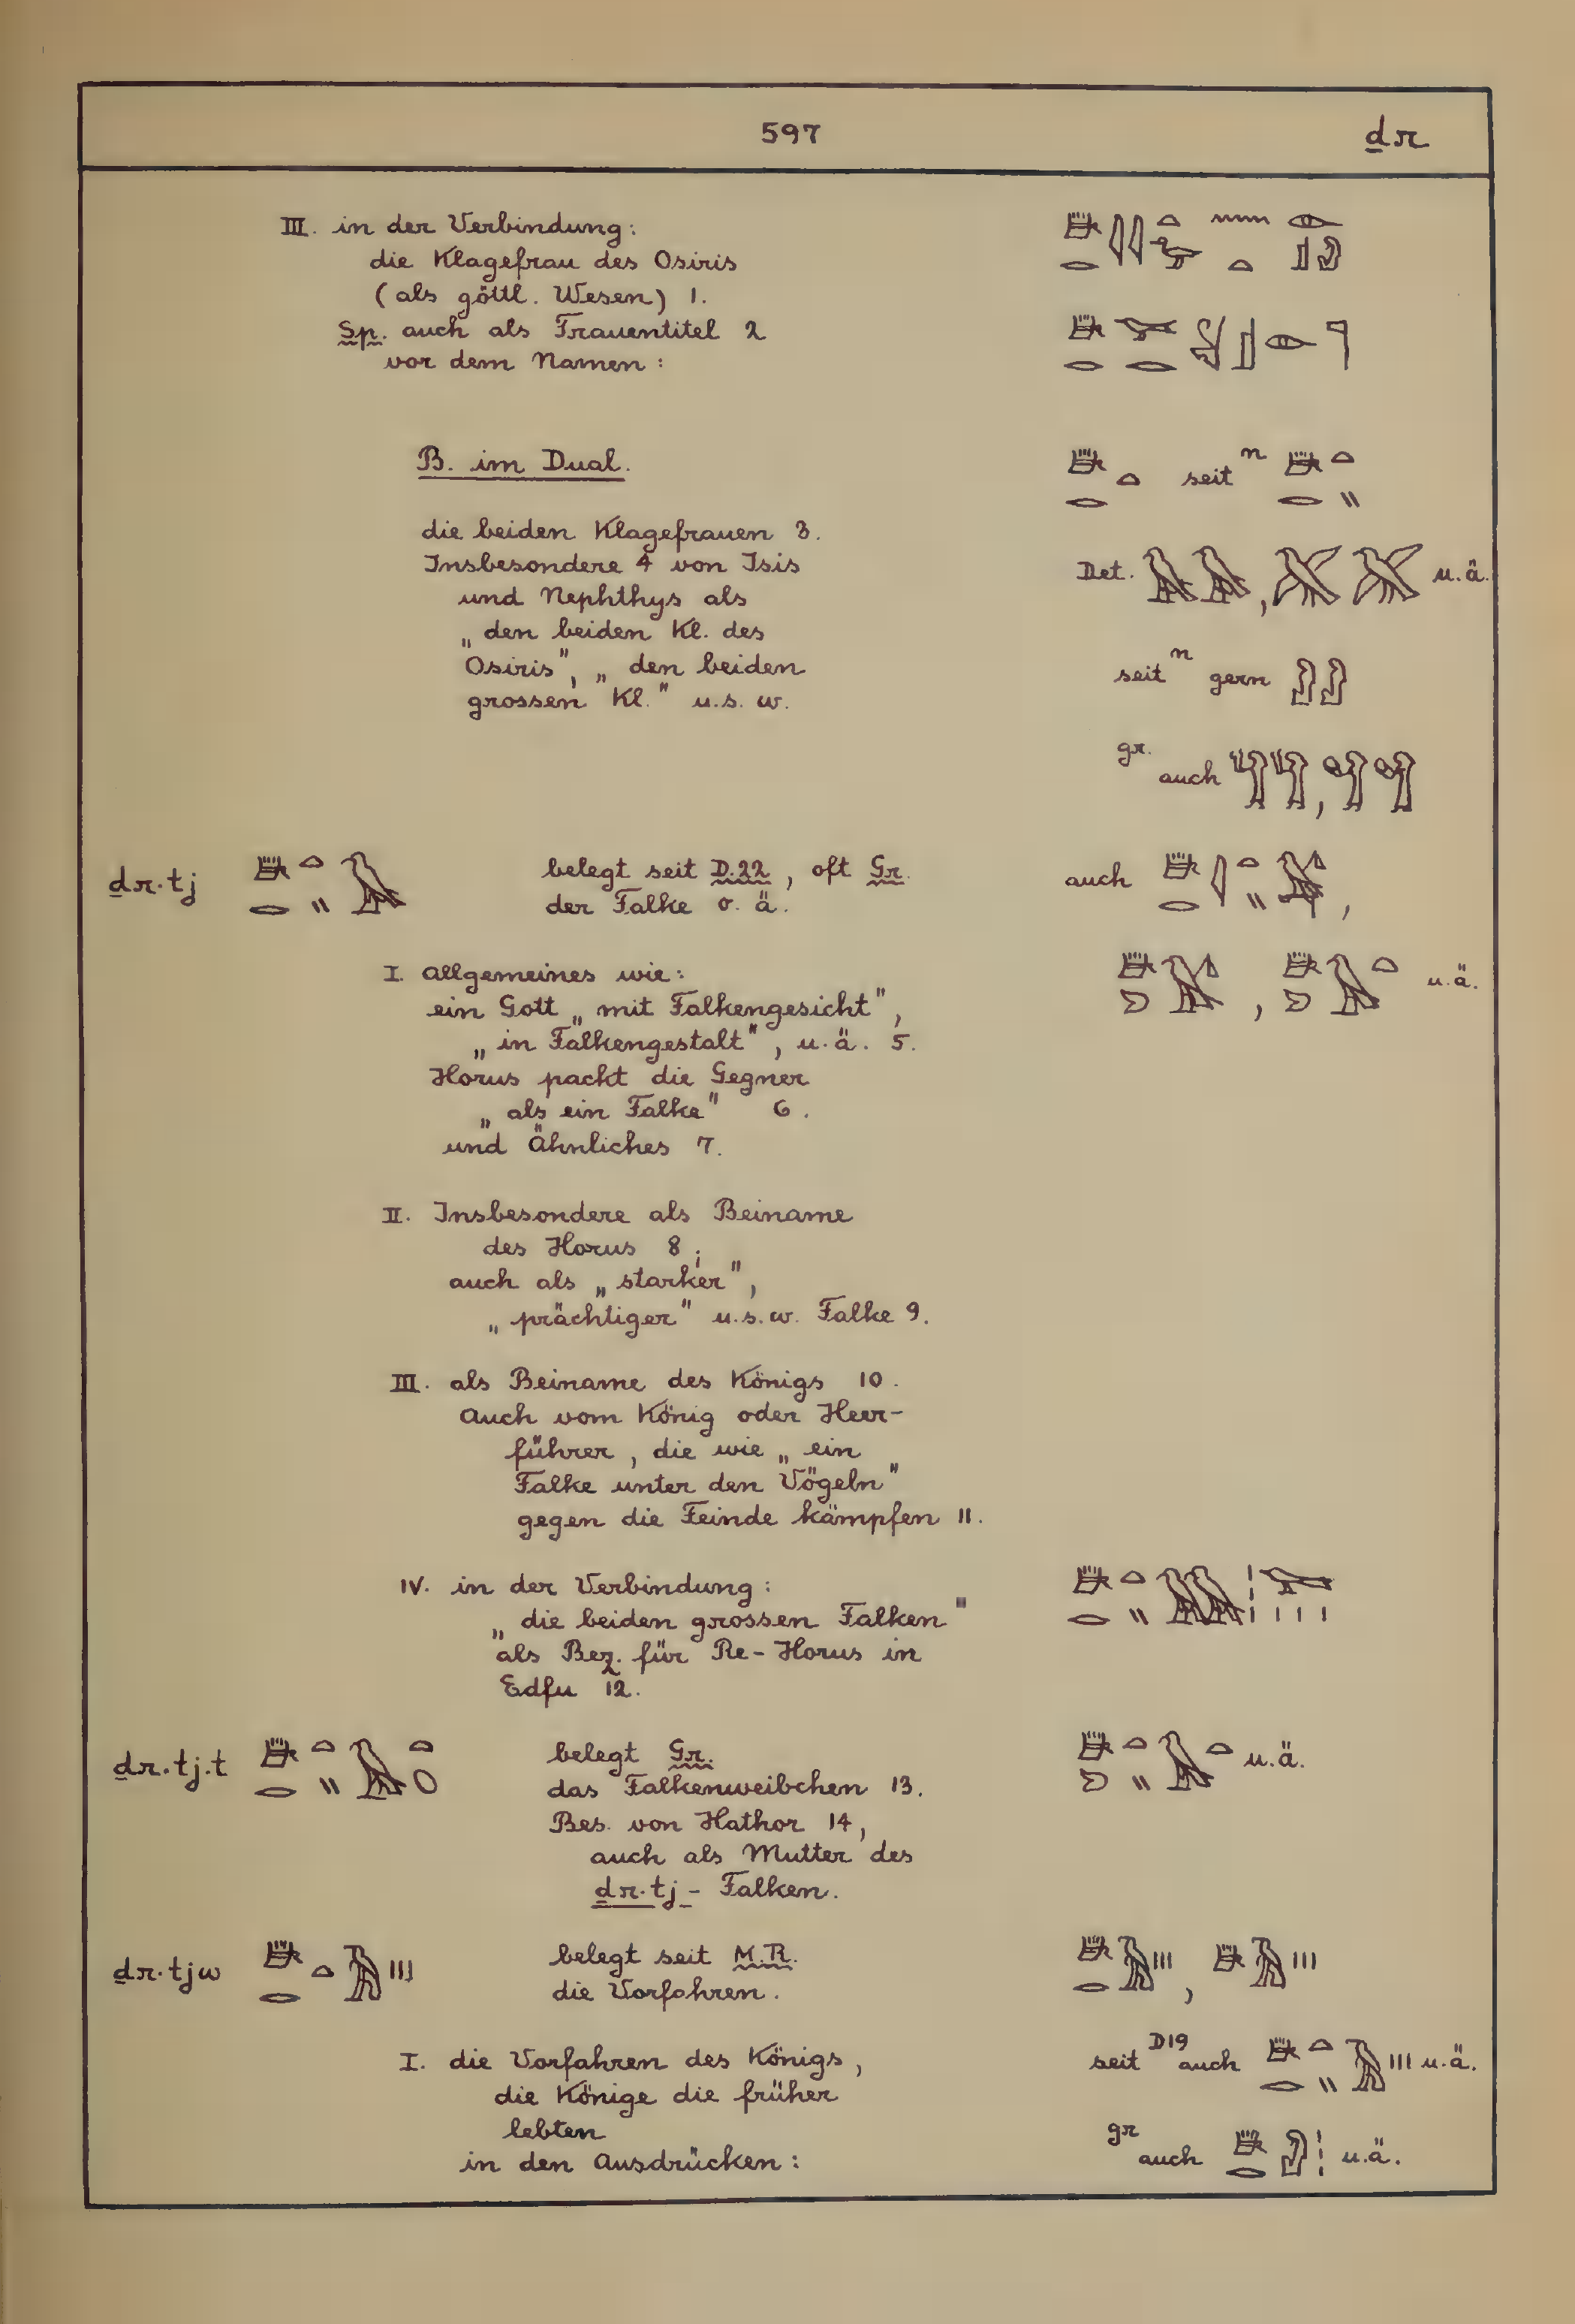 597
ḏr
III. in der Verbindung:
die Klagefrau des Osiris
(als göttl. Wesen) 1.
Sp. auch als Frauentitel 2
vor dem Namen:
B. im Dual.
seit n
die beiden Klagefrauen 3.
Insbesondere 4 von Isis
Det. u.ä.
und Nephthys als
„den beiden Kl. des
Osiris", „den beiden
seit n gern
grossen Kl." u.s.w.
gr. auch
ḏr.tj
belegt seit D.22, oft Gr.
auch
der Falke o.ä.
I. allgemeines wie:
u.ä.
ein Gott „mit Falkengesicht",
„in Falkengestalt", u.ä. 5.
Horus packt die Gegner
„als ein Falke" 6.
und Ähnliches 7.
II. Insbesondere als Beiname
des Horus 8;
auch als „starker",
„prächtiger" u.s.w. Falke 9.
III. als Beiname des Königs 10.
Auch vom König oder Heer-
führer, die wie „ein
Falke unter den Vögeln"
gegen die Feinde kämpfen 11.
IV. in der Verbindung:
„die beiden grossen Falken"
als Bez. für Re-Horus in
Edfu 12.
ḏr.tj.t
belegt Gr.
u.ä.
das Falkenweibchen 13.
Bes. von Hathor 14,
auch als Mutter des
ḏr.tj-Falken.
ḏr.tjw
belegt seit M.R.
die Vorfahren.
I. die Vorfahren des Königs,
seit D19 auch u.ä.
die Könige die früher
lebten
gr auch u.ä.
in den Ausdrücken: